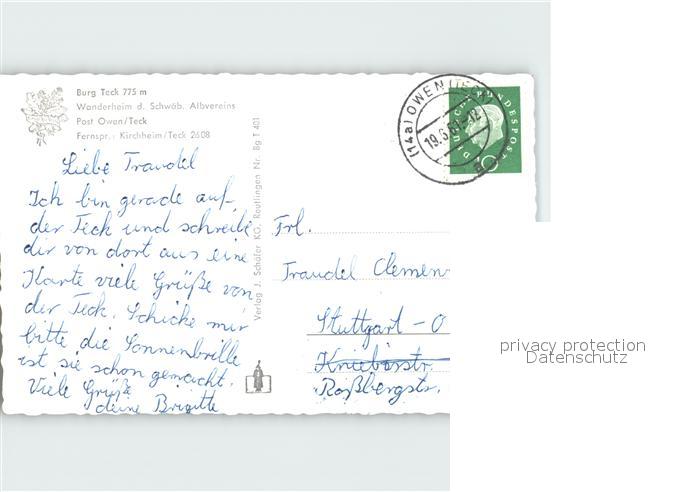 Burg Teck 775 m
Wanderheim d. Schwäb. Albvereins
Post Owen/Teck
Fernspr.: Kirchheim/Teck 2608
Liebe Traudel
Ich bin gerade auf
der Teck und schreibe
dir von dort aus eine
Karte viele Grüße von
der Teck. Schicke mir
bitte die Sonnenbrille
ist sie schon gemacht.
Viele Grüße
deine Brigitte
Verlag J. Schäfer KG. Reutlingen Nr. Bg T 401
(14a) OWEN (TECK)
DEUTSCHE BUNDESPOST
Frl.
Traudel Clemen
Stuttgart - O
Kniebisstr.
Roßbergstr.
privacy protection
Datenschutz